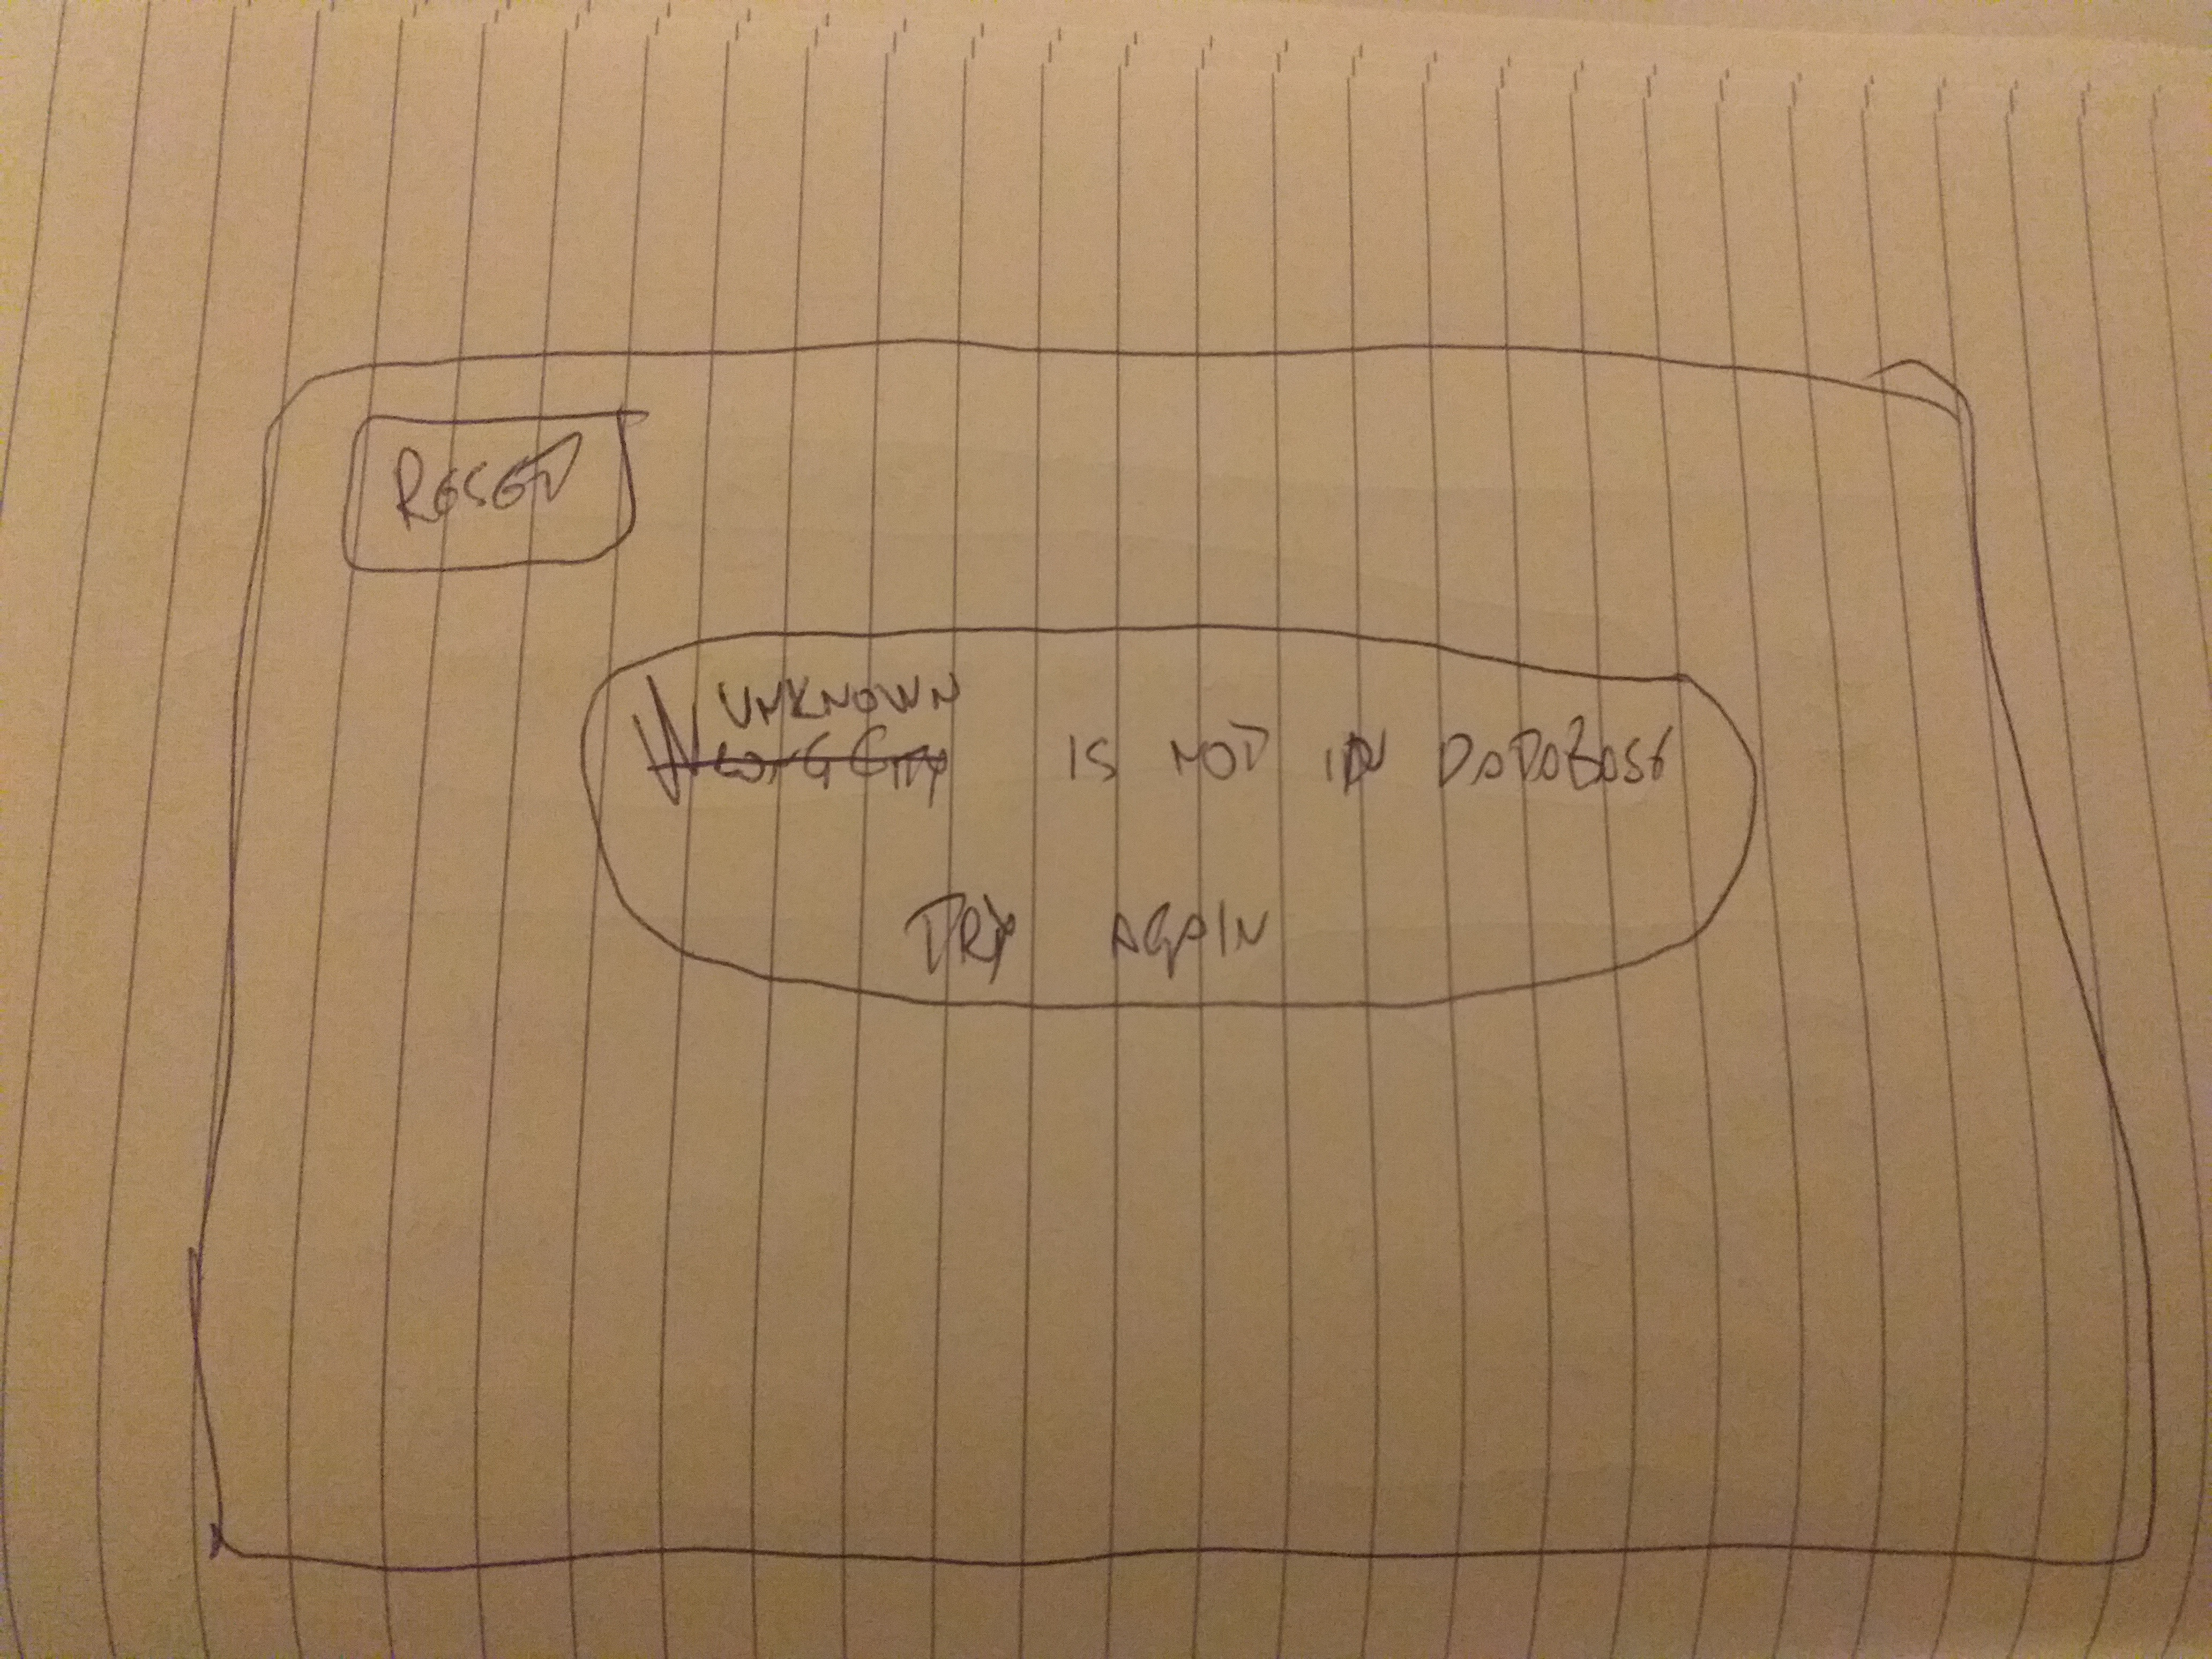 RESET
UNKNOWN
IS NOT IN DATABASE
TRY AGAIN